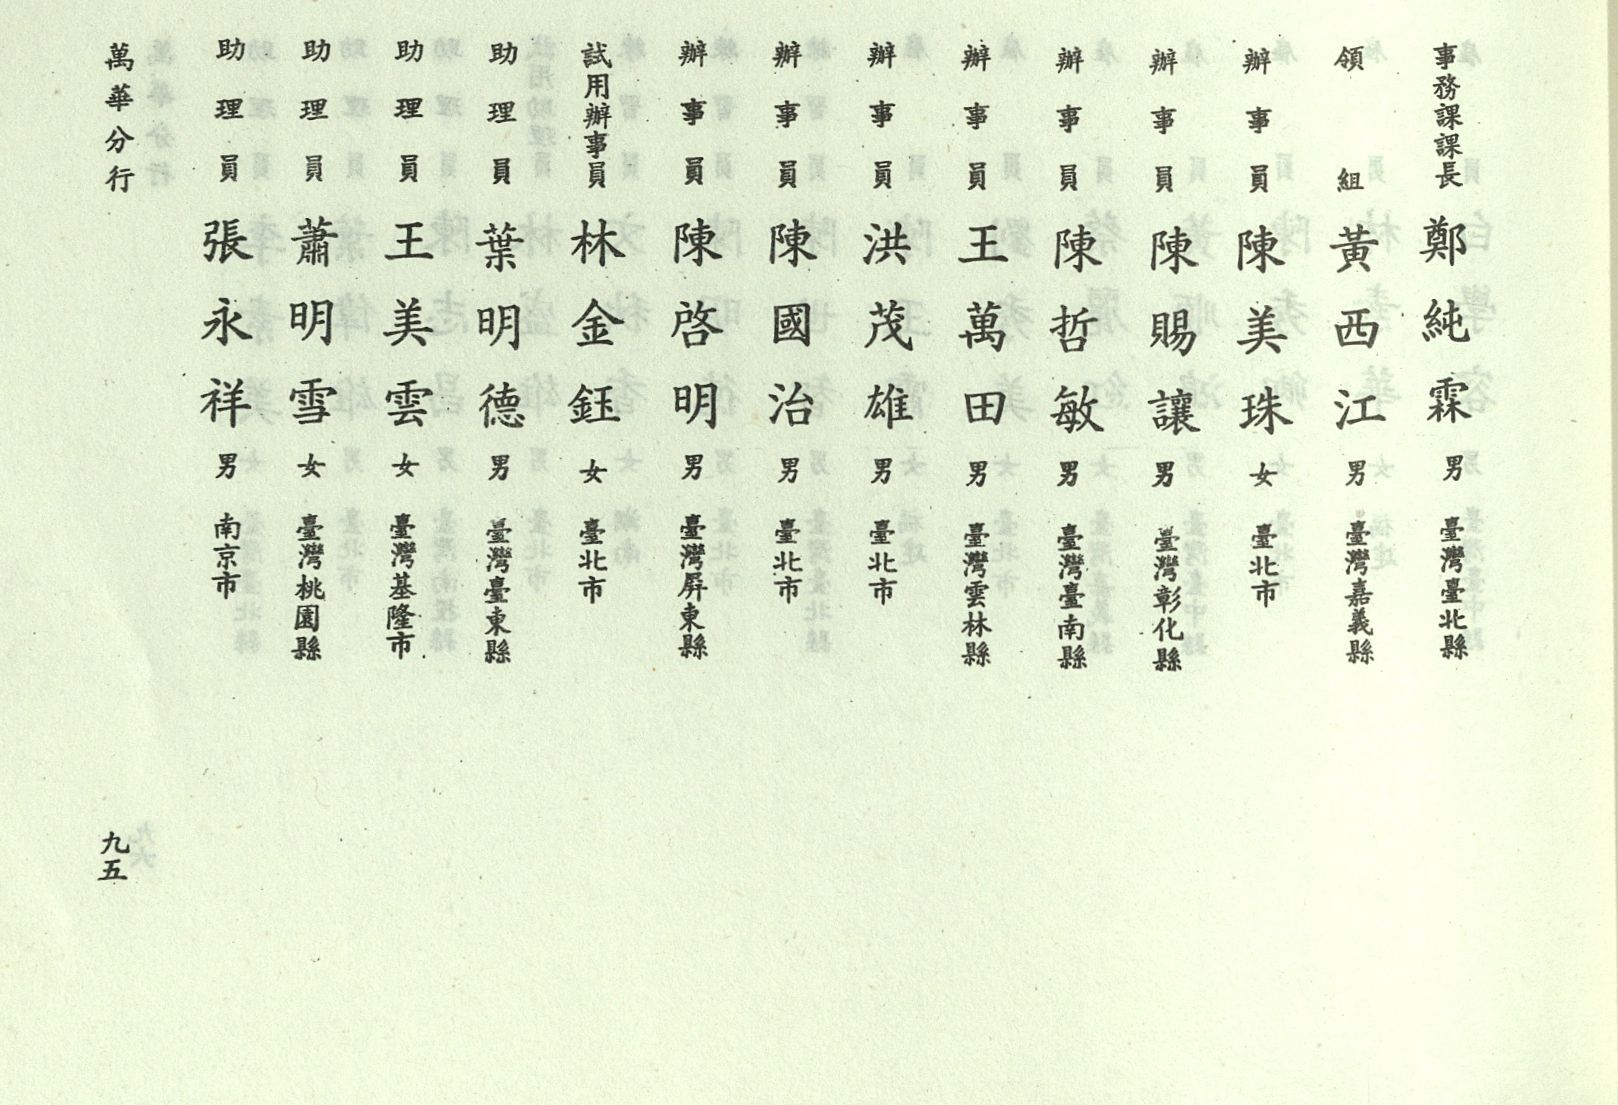 事務課課長 鄭純霖 男 臺灣臺北縣
領組 黃西江 男 臺灣嘉義縣
辦事員 陳美珠 女 臺北市
辦事員 陳賜讓 男 臺灣彰化縣
辦事員 陳哲敏 男 臺灣臺南縣
辦事員 王萬田 男 臺灣雲林縣
辦事員 洪茂雄 男 臺北市
辦事員 陳國治 男 臺北市
辦事員 陳啓明 男 臺灣屏東縣
試用辦事員 林金鈺 女 臺北市
助理員 葉明德 男 臺灣臺東縣
助理員 王美雲 女 臺灣基隆市
助理員 蕭明雪 女 臺灣桃園縣
助理員 張永祥 男 南京市
萬華分行
九五